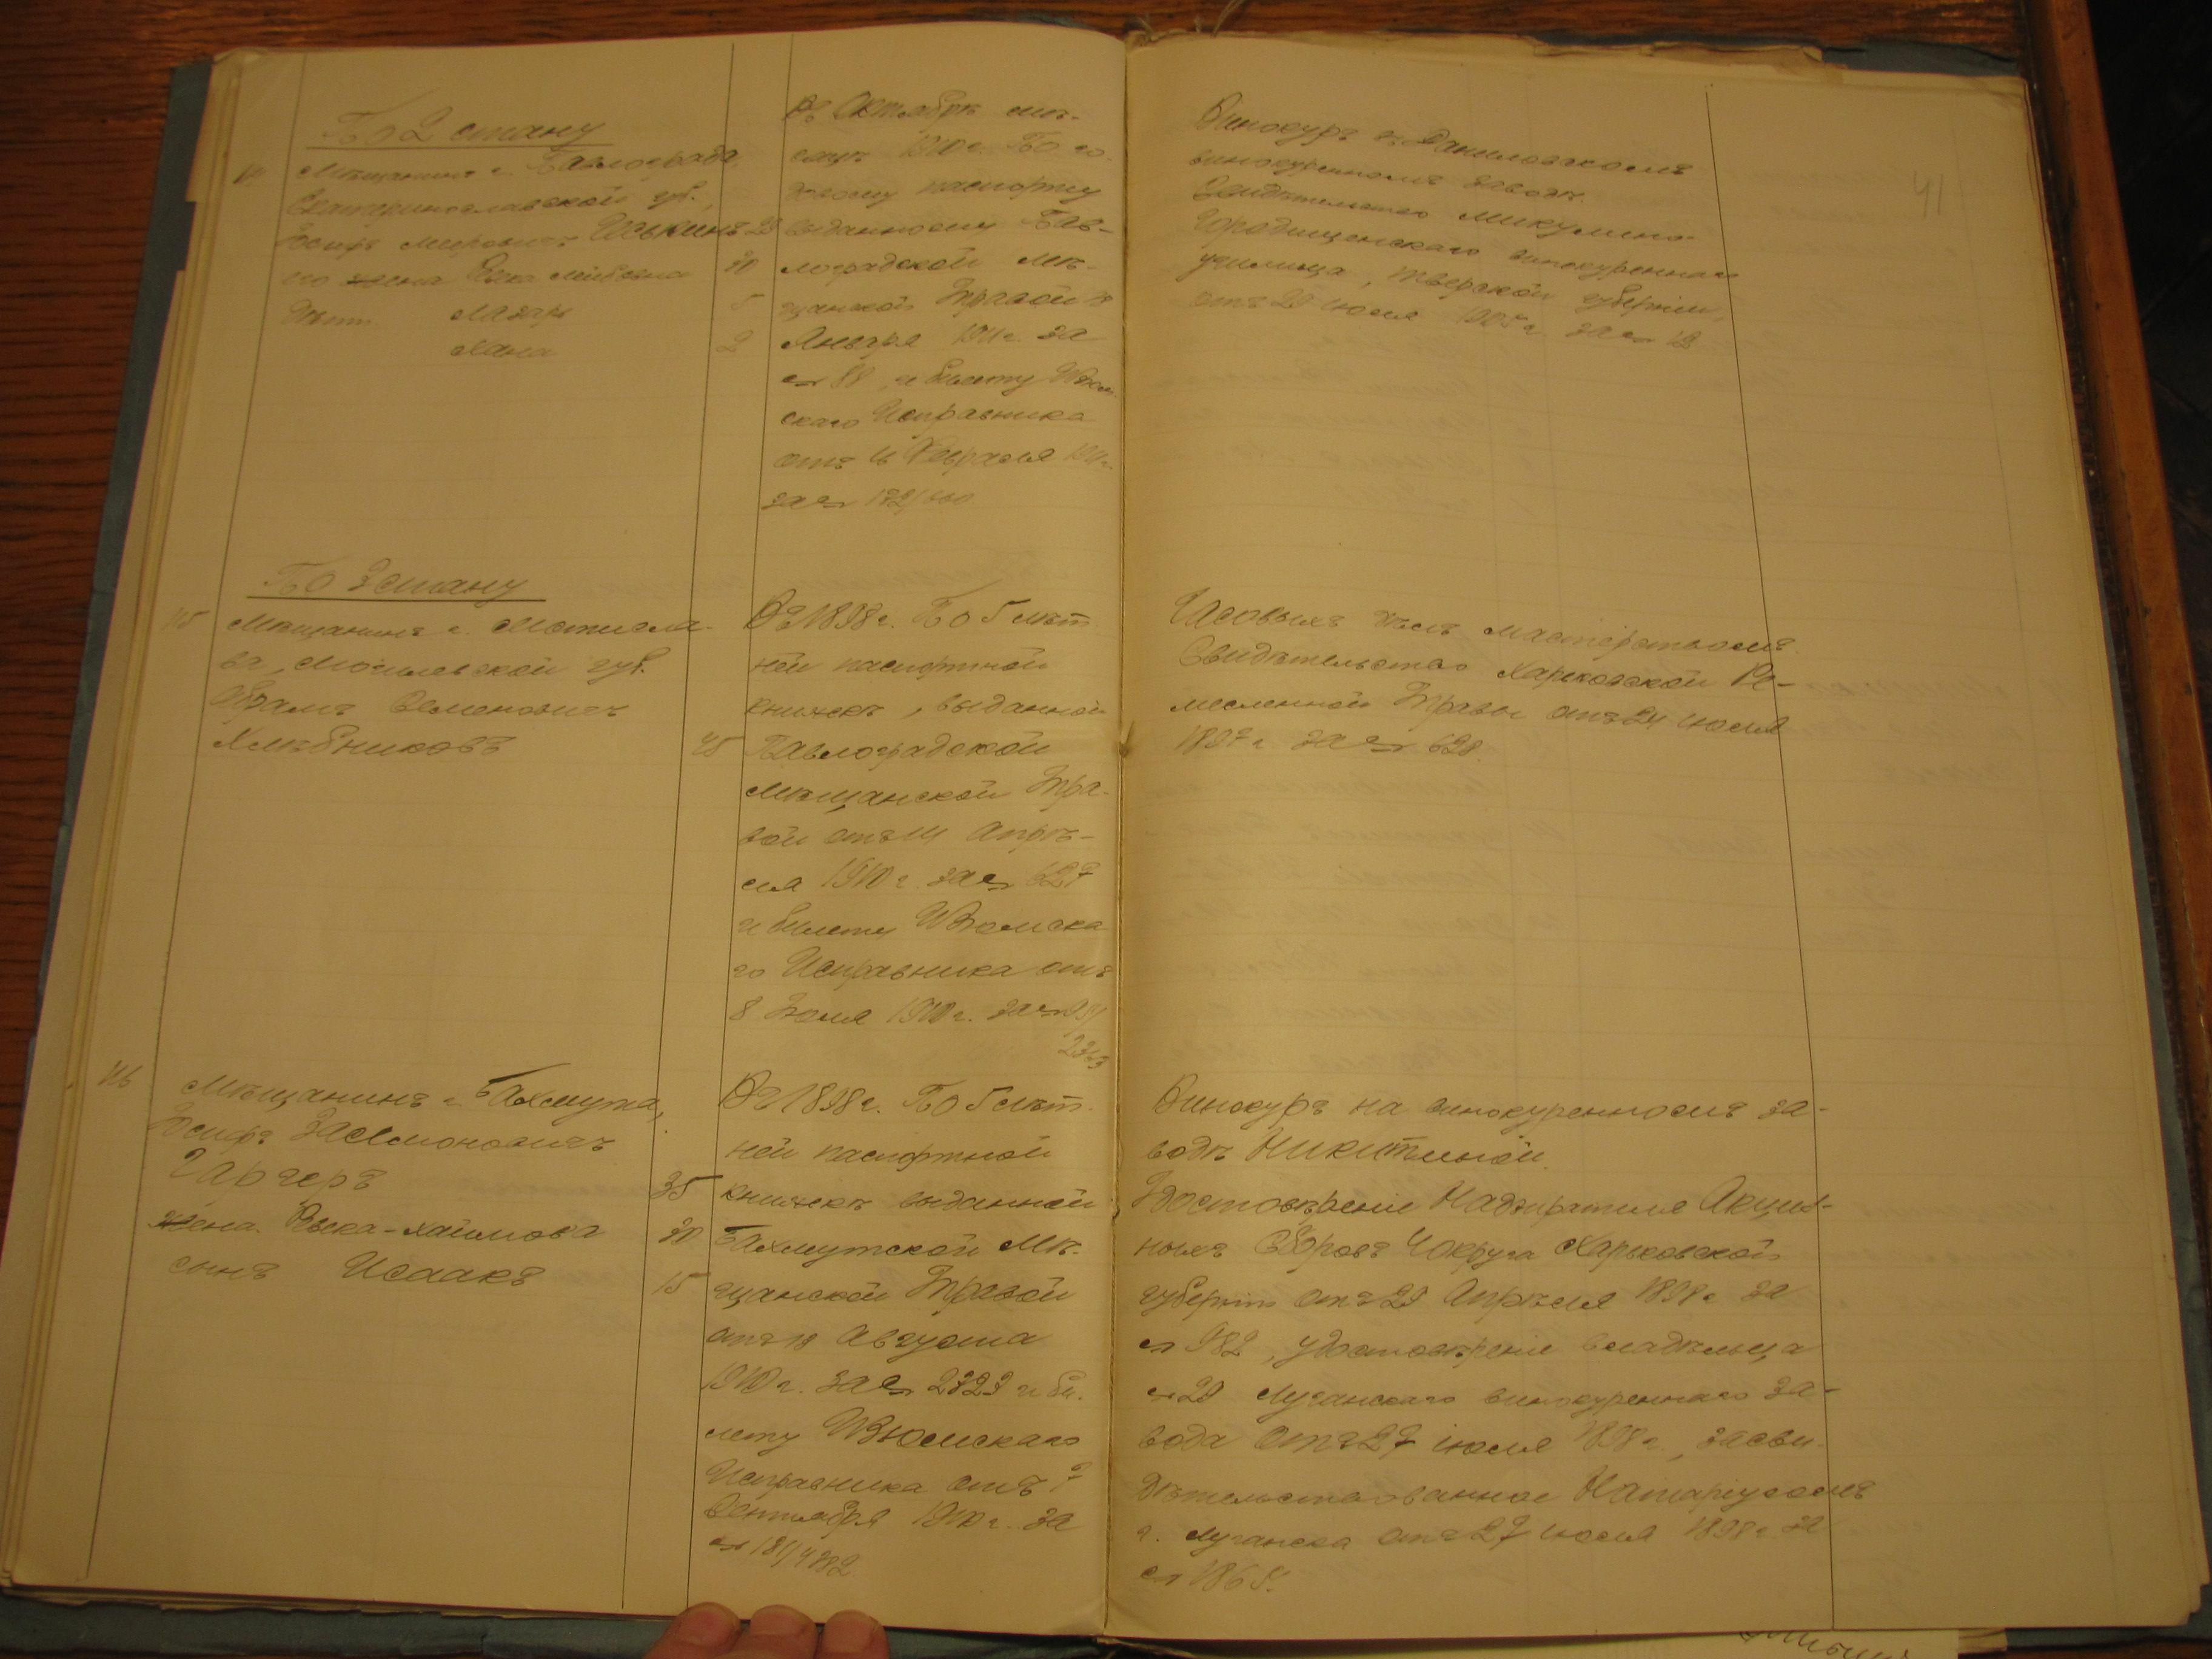 41
По 2 стану
Мѣщанинъ г. Павлограда
Екатеринославской губ.,
Іосифъ Меировичъ Иоькинъ 28
его жена Рыка Лейбовна 30
Дѣти. Лазарь 5
Хана 2
Въ Октябрѣ мѣ-
сяцѣ 1910 г. По го-
довому паспорту
выданному Пав-
лоградской Мѣ-
щанской Управой 18
Января 1911 г. за
№ 88, и билету Изюм-
скаго Исправника
отъ 16 Февраля 1911 г.
за №
Винокуръ въ Даниловскомъ
винокуренномъ заводѣ.
Свидѣтельство Микулино-
Городищенскаго винокуреннаго
училища, Тверской губерніи,
отъ 29 іюля 1905 г. за № 12
По 3 стану
115 Мѣщанинъ г. Мстисла-
вя, Могилевской губ.
Абрамъ Семеновичъ
Хлѣбниковъ 45
Въ 1898 г. По 5 лѣт-
ней паспортной
книжкѣ, выданной
Павлоградской
Мѣщанской Упра-
вой отъ 14 Апрѣ-
ля 1910 г. за № 627
и билету Изюмска
го Исправника отъ
8 Іюля 1910 г. за №
Часовыхъ дѣлъ мастерствомъ.
Свидѣтельство Харьковской Ре-
месленной Управы отъ 24 іюля
1897 г. за № 628.
116 Мѣщанинъ г. Бахмута,
Іосифъ Залмоновичъ
Гарчеръ 35
жена. Рыска-Хаимова 30
сынъ Исаакъ 15
Въ 1898 г. По 5 лѣт-
ней паспортной
книжкѣ выданной
Бахмутской Мѣ-
щанской Управой
отъ 18 Августа
1910 г. за № 2723 и би-
лету Изюмскаго
Исправника отъ 7
Сентября 1910 г. за
№ 181/4782
Винокуръ на винокуренномъ за-
водѣ Никитиной.
Удостовѣреніе Надзирателя Акциз-
ныхъ Сборовъ 4 округа Харьковской
губерніи отъ 29 Апрѣля 1898 г. за
№ 982, удостовѣреніе владѣльца
№ 29 Луганскаго винокуреннаго за-
вода отъ 27 іюля 1898 г., засви-
дѣтельствованное Натаріусомъ
г. Луганска отъ 27 іюля 1898 г. за
№ 1865.